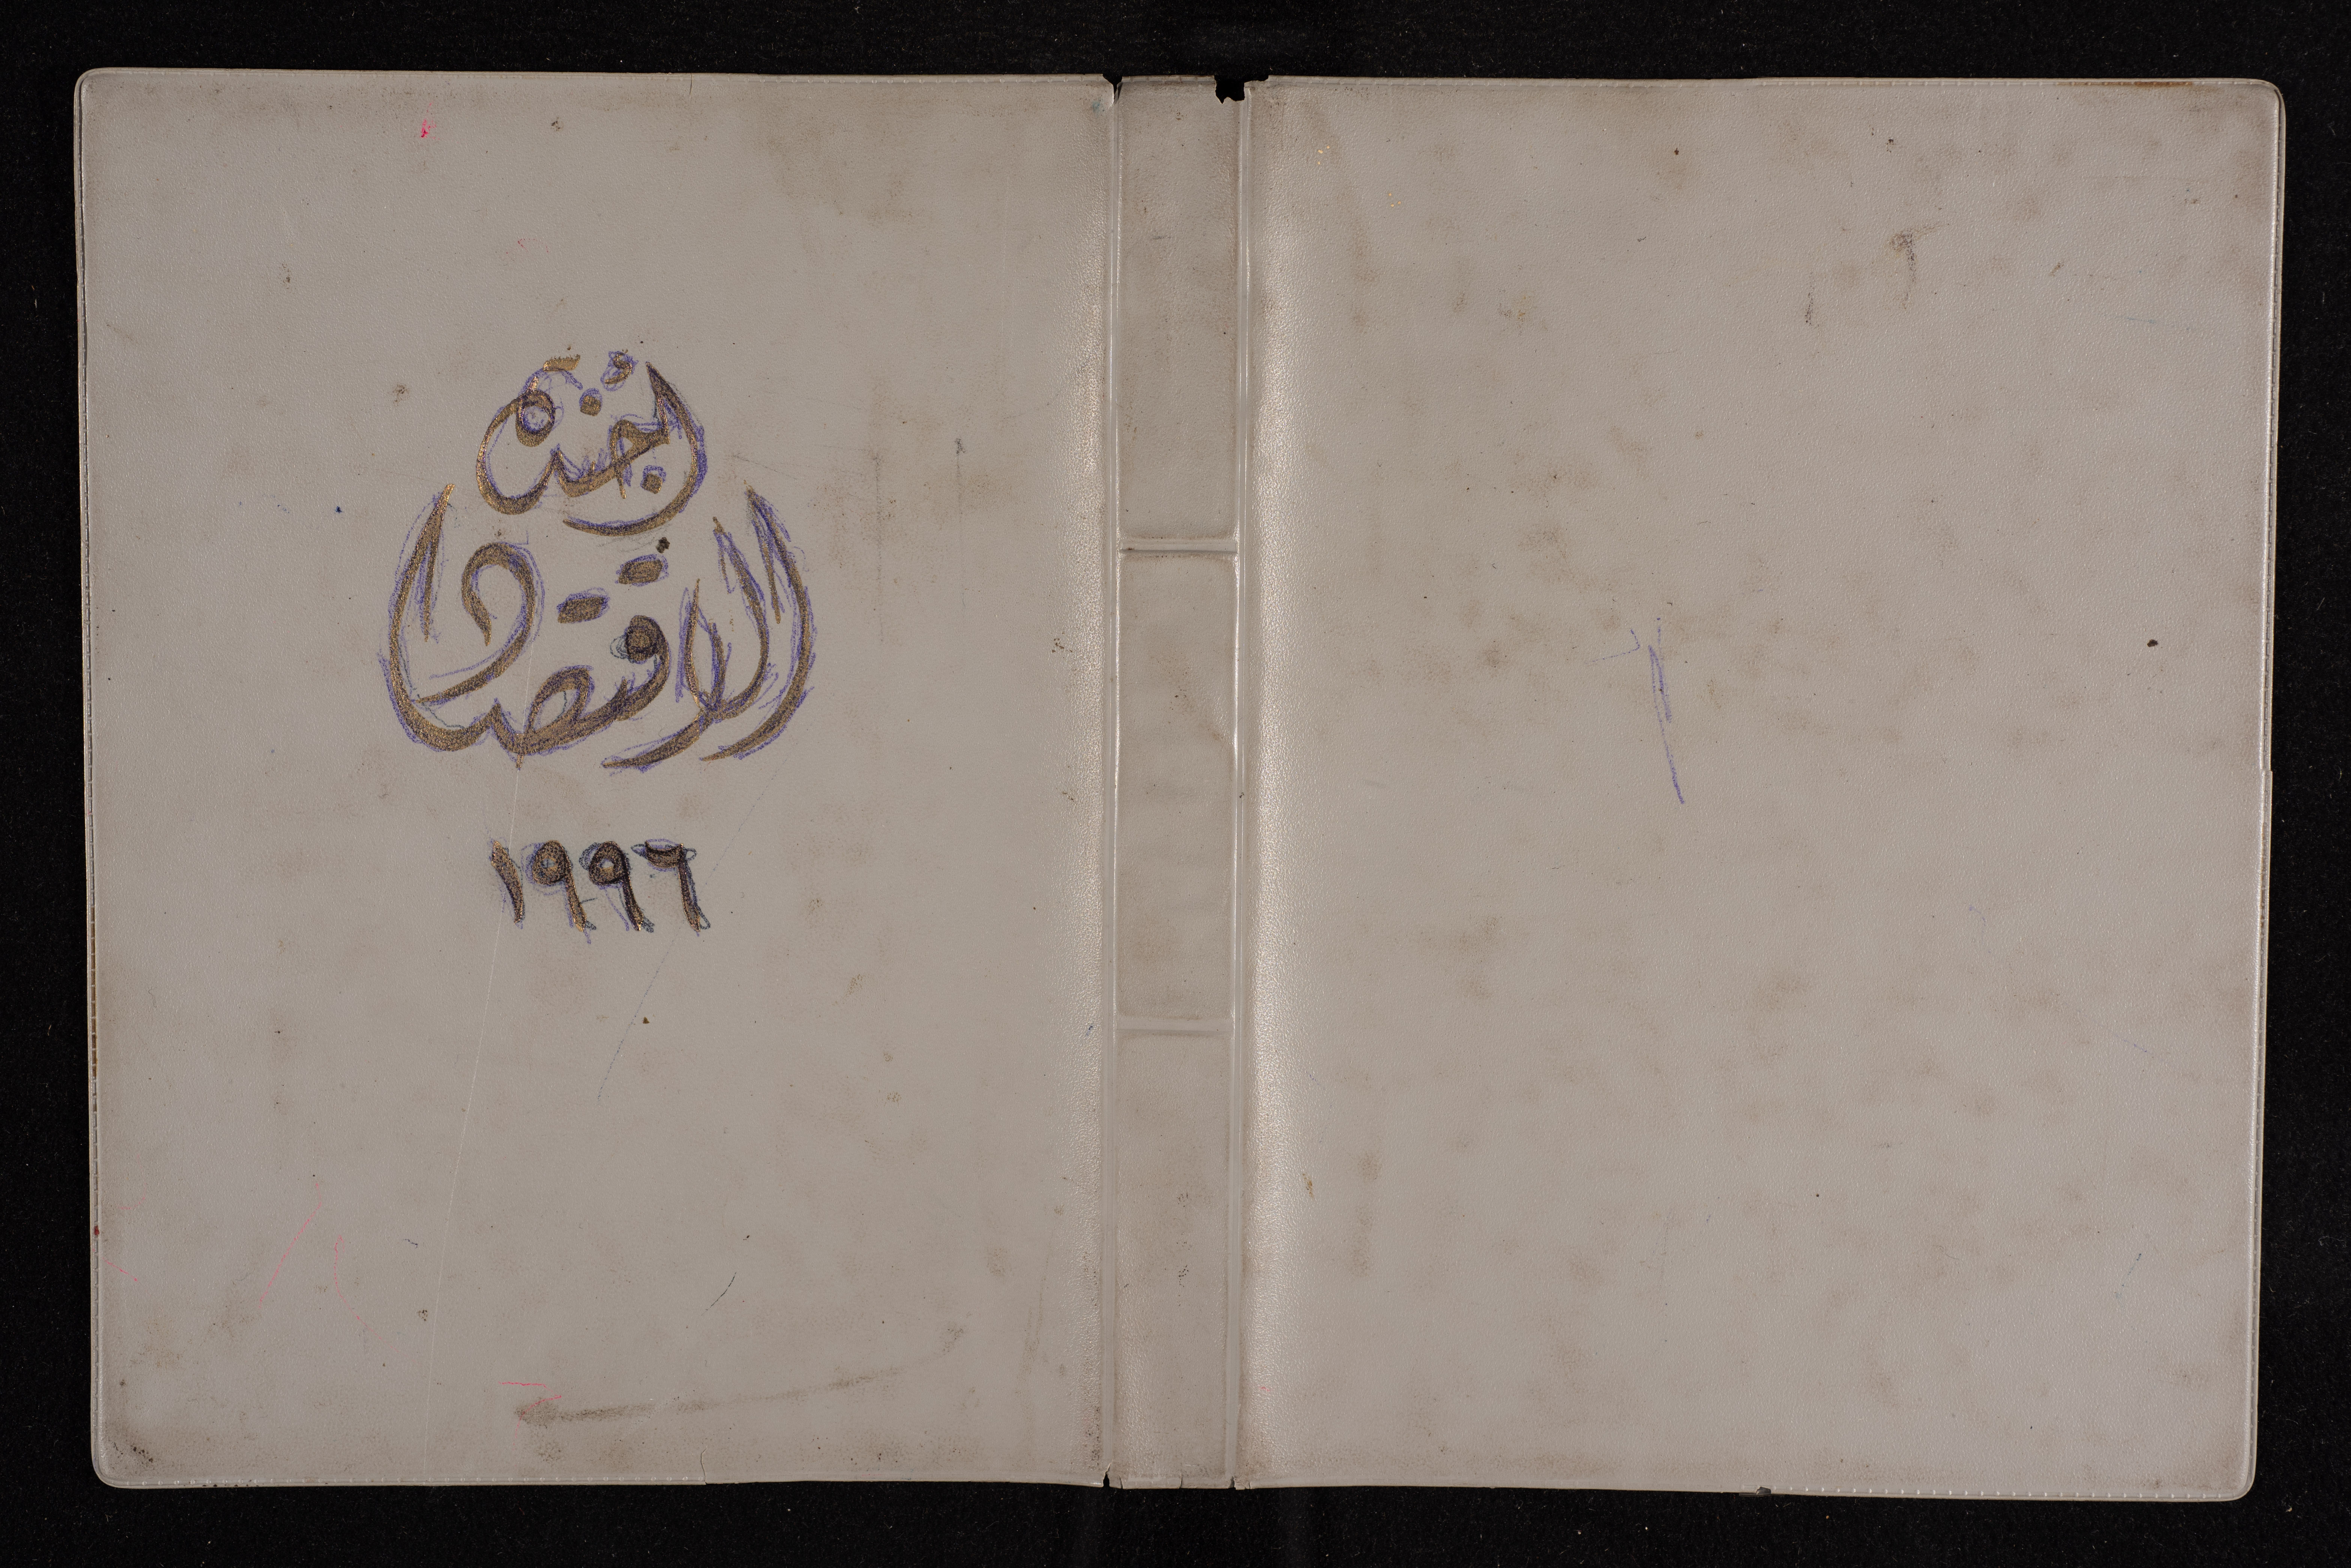 لجنة
الاقتصاد
١٩٩٦